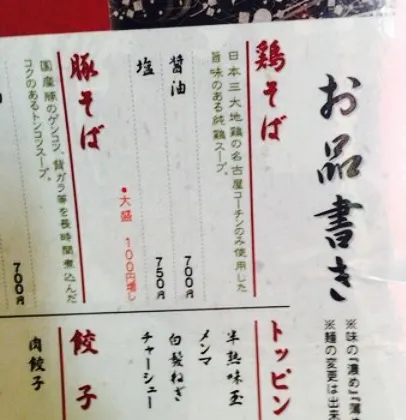 お品書き
※味の『濃め』『薄
※麺の変更は出来
鶏そば
日本三大地鶏の名古屋コーチンのみ使用した
旨味のある純鶏スープ。
醤油 700円
塩 750円
●大盛 100円増し
豚そば
国産豚のゲンコツ、背ガラ等を長時間煮込んだ
コクのあるトンコツスープ。
700円
トッピン
半熟味玉
メンマ
白髪ねぎ
チャーシュー
餃子
肉餃子